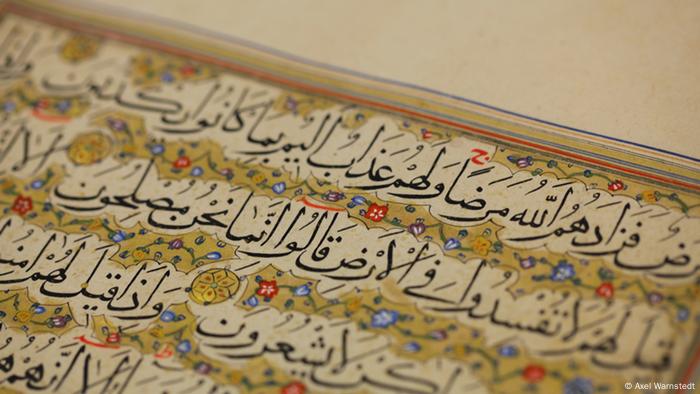 رض فزادهم الله مرضا ولهم عذاب اليم بما كانوا يكذبون واذا
قيل لهم لا تفسدوا في الارض قالوا انما نحن مصلحون الا
لكن لا يشعرون واذا قيل لهم امنوا
الا انهم
© Axel Warnstedt